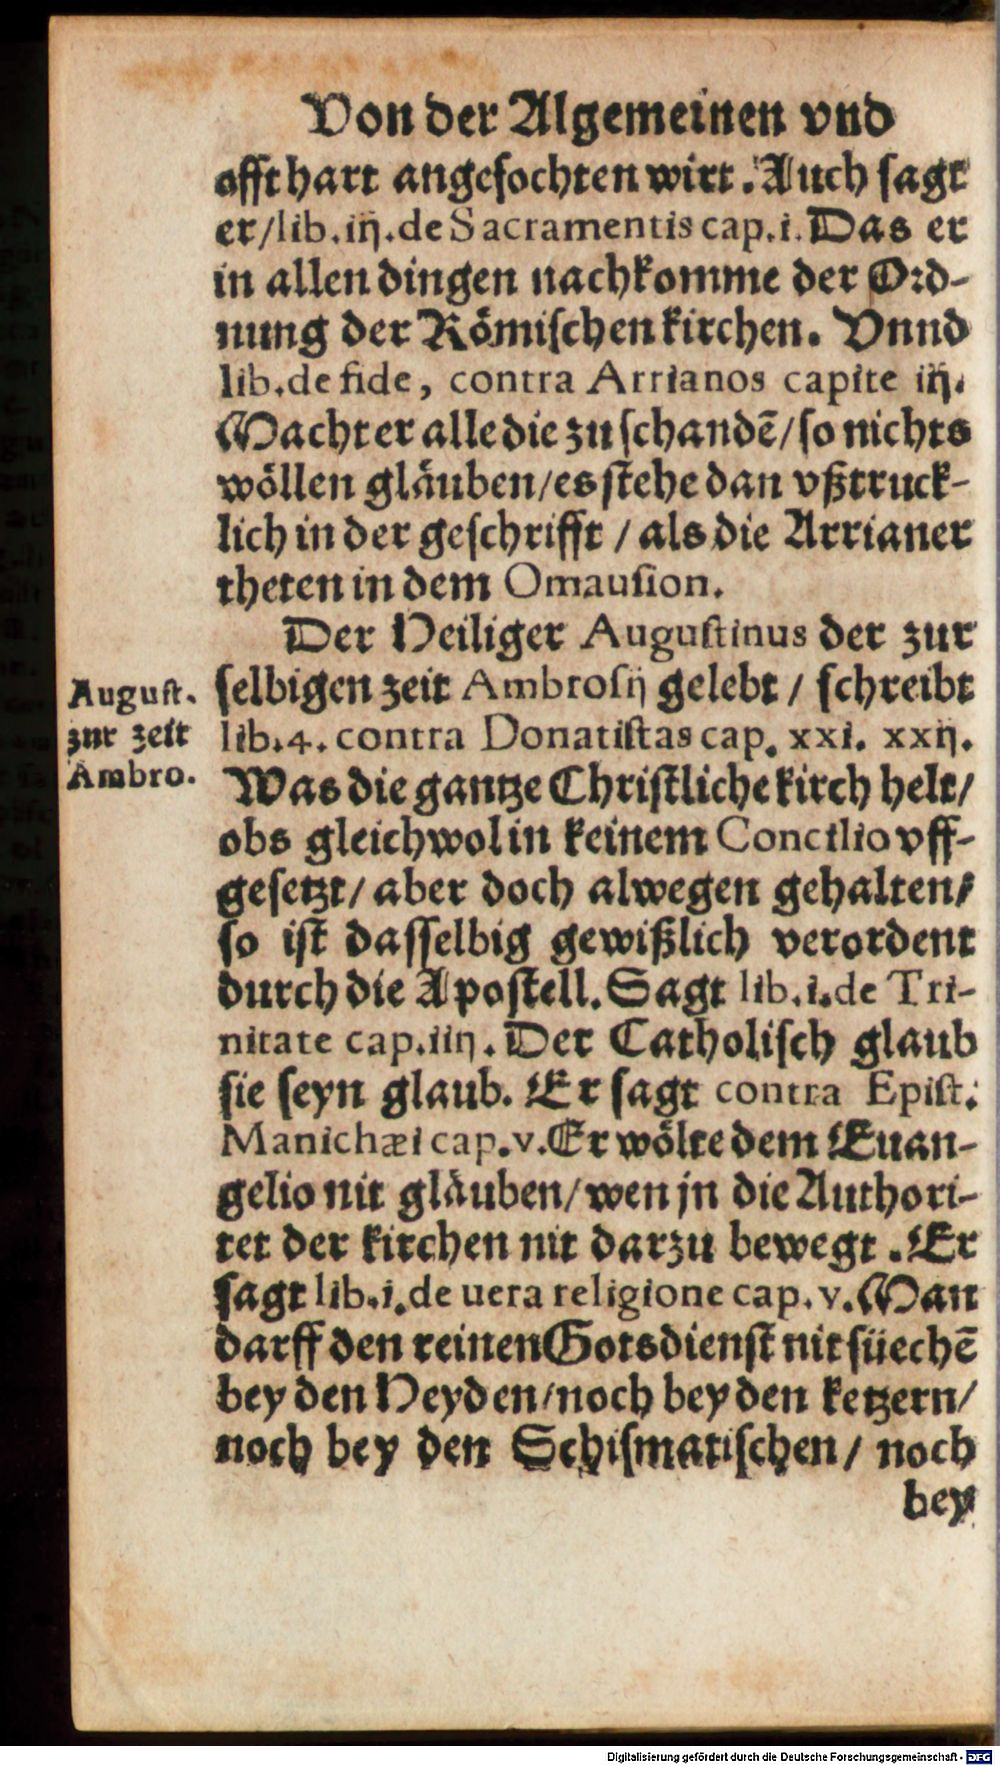 Von der Algemeinen vnd
offt hart angefochten wirt. Auch sagt
er/lib.iij.de Sacramentis cap.i. Das er
in allen dingen nachkomme der Ord-
nung der Römischen kirchen. Vnnd
lib.de fide, contra Arrianos capite iij.
Macht er alle die zu schandē/so nichts
wöllen gläuben/es stehe dan vßtruck-
lich in der geschrifft / als die Arrianer
theten in dem Omausion.
Der Heiliger Augustinus der zur
selbigen zeit Ambrosij gelebt / schreibt
lib.4. contra Donatistas cap. xxi. xxij.
August.
zur zeit
Ambro.
Was die gantze Christliche kirch helt/
obs gleichwol in keinem Concilio vff-
gesetzt/ aber doch alwegen gehalten/
so ist dasselbig gewißlich verordent
durch die Apostell. Sagt lib.i.de Tri-
nitate cap.iiij. Der Catholisch glaub
sie seyn glaub. Er sagt contra Epist.
Manichæi cap.v. Er wölte dem Euan-
gelio nit gläuben/wen jn die Authori-
tet der kirchen nit darzu bewegt . Er
sagt lib.i.de uera religione cap.v. Man
darff den reinen Gotsdienst nit süechē
bey den Heyden/noch bey den ketzern/
noch bey den Schismatischen/ noch
bey
Digitalisierung gefördert durch die Deutsche Forschungsgemeinschaft - DFG